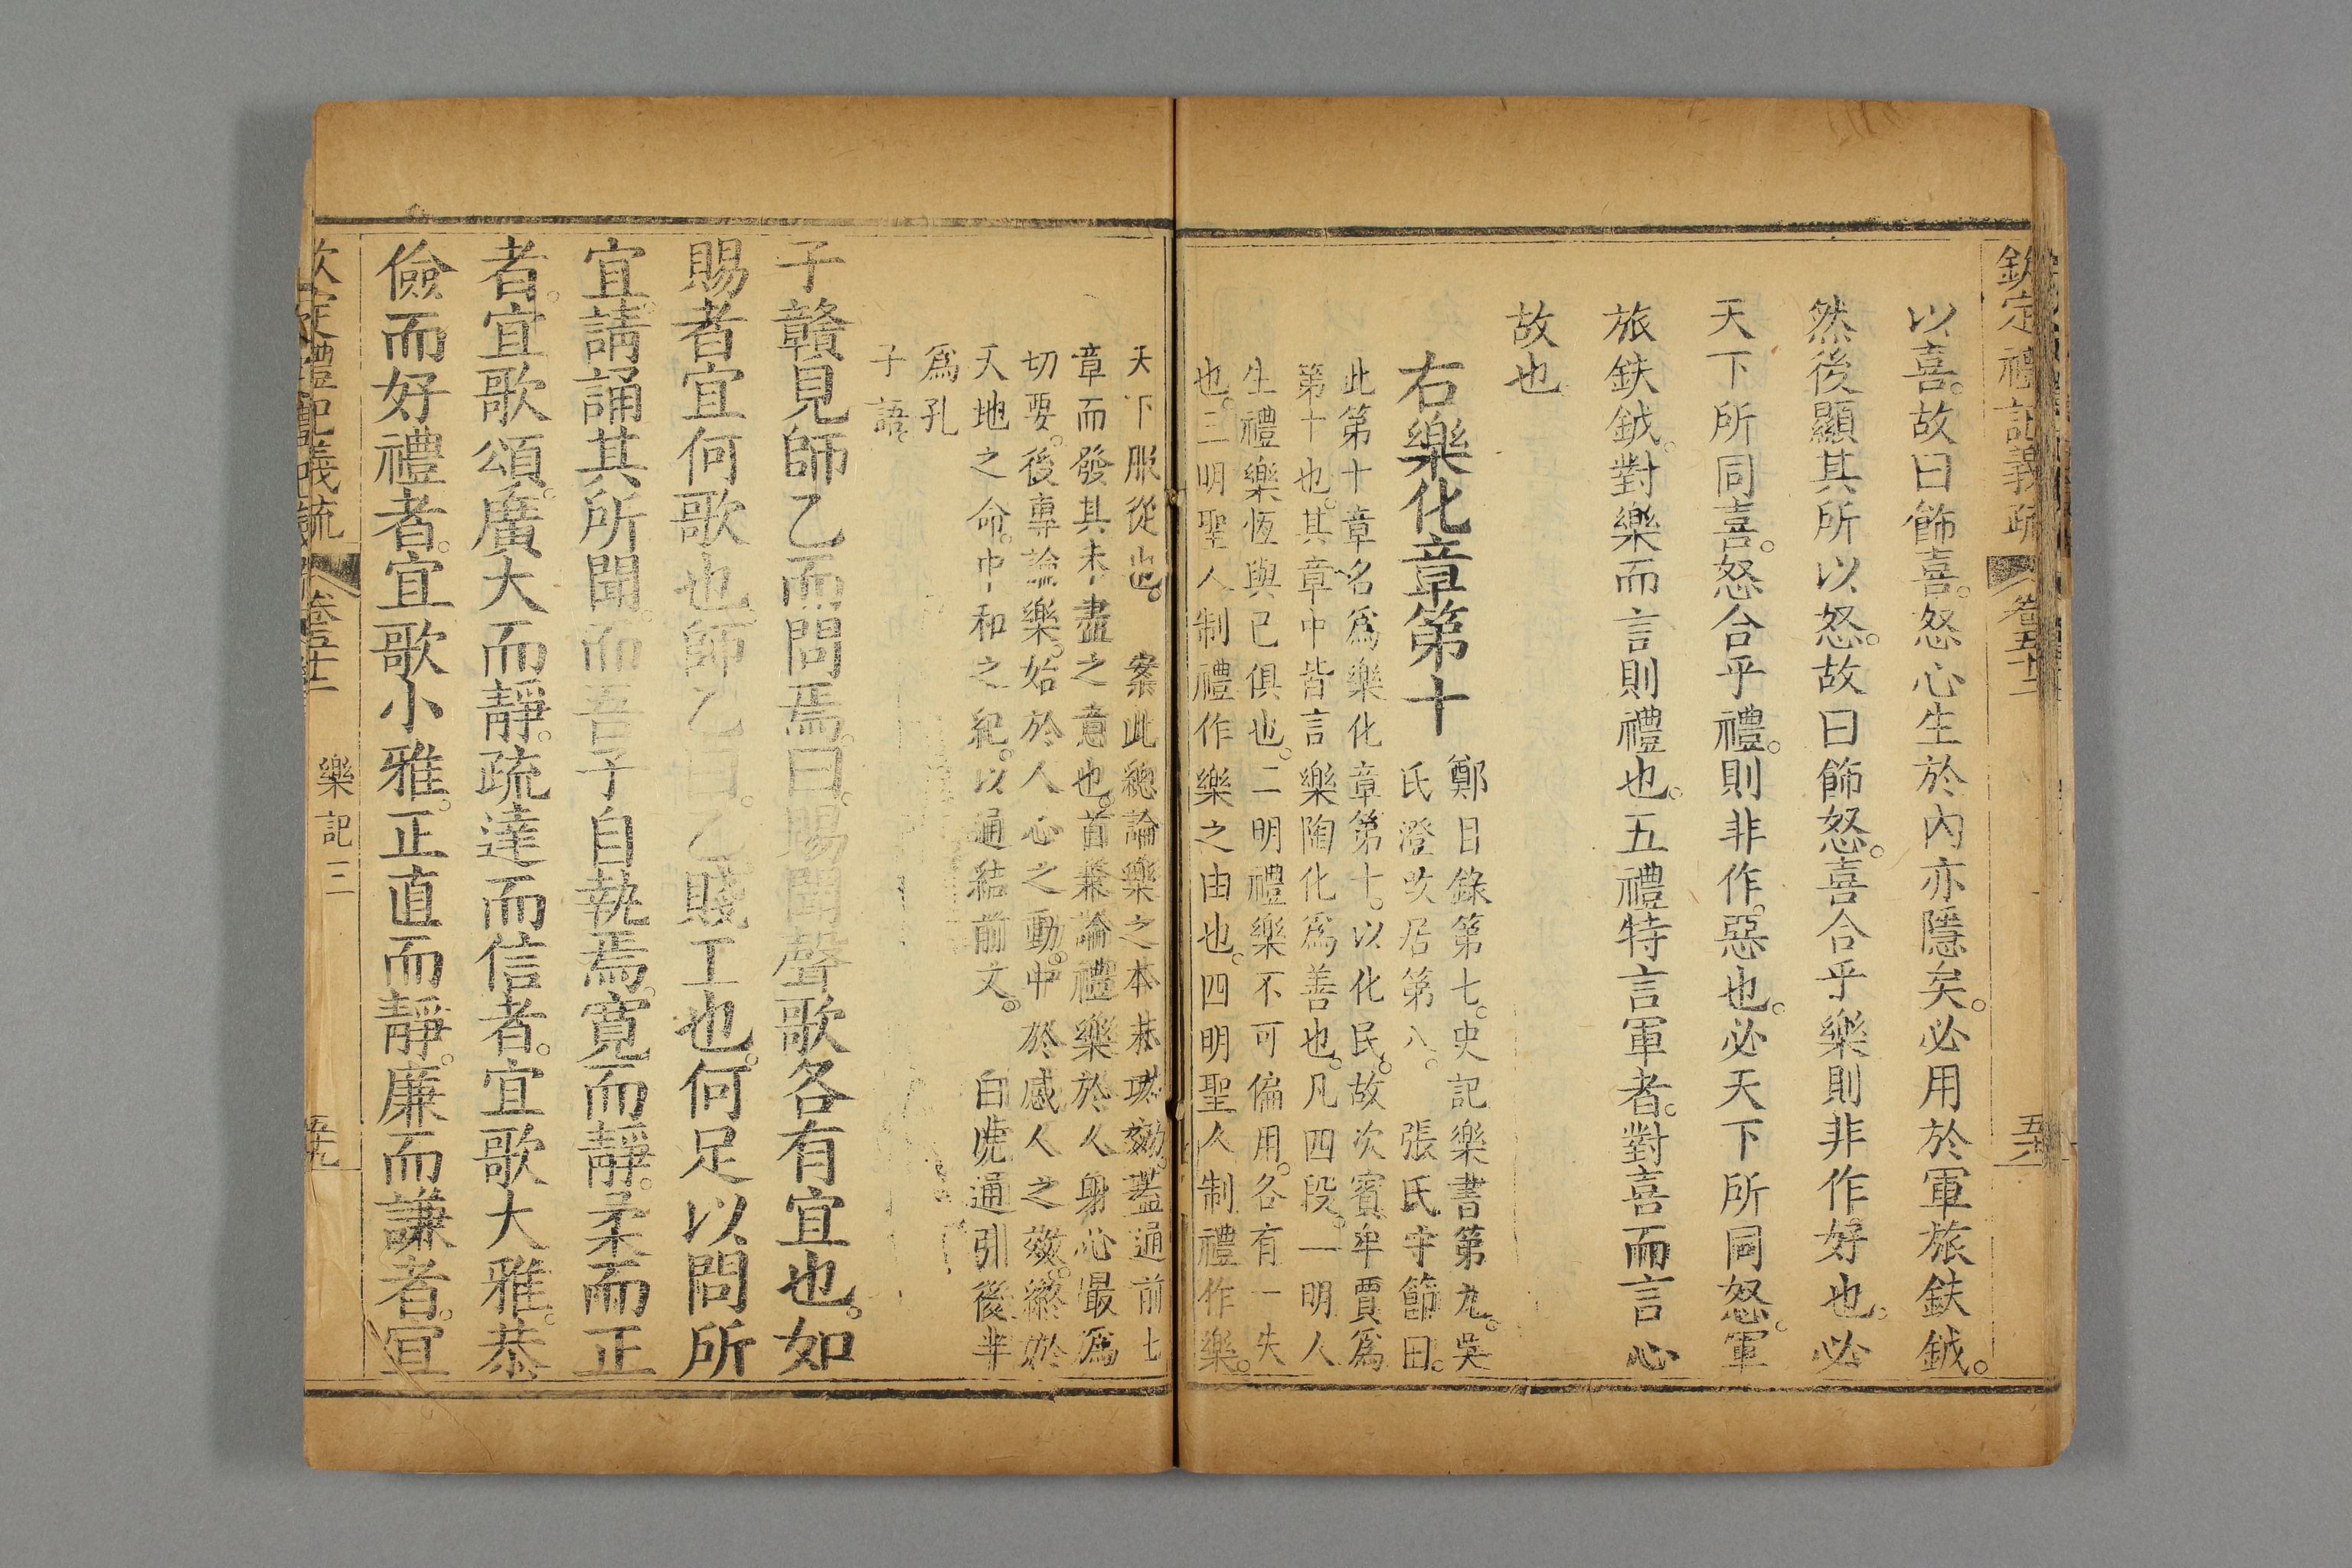 欽定禮記義疏 卷五十二
以喜。故曰飾喜。怒心生於內亦隱矣。必用於軍旅鈇鉞。
然後顯其所以怒。故曰飾怒。喜合乎樂則非作好也。必
天下所同喜。怒合乎禮。則非作惡也。必天下所同怒。軍
旅鈇鉞。對樂而言則禮也。五禮特言軍者。對喜而言心
故也
右樂化章第十
鄭目錄第七。史記樂書第九。吳
氏澄改居第八。 張氏守節曰。
此第十章名爲樂化章第十。以化民。故次賓牟賈爲
第十也。其章中皆言樂陶化爲善也。凡四段。一明人
生禮樂恆與已俱也。二明禮樂不可偏用。各有一失
也。三明聖人制禮作樂之由也。四明聖人制禮作樂。
天下服從也。 案此總論樂之本末功效。蓋通前七
章而發其未盡之意也。首兼論禮樂於人身心最爲
切要。後專論樂。始於人心之動。中於感人之效。終於
天地之命。中和之紀。以通結前文。 白虎通引後半
爲孔
子語。
子贛見師乙而問焉。曰。賜聞聲歌各有宜也。如
賜者宜何歌也。師乙曰。乙賤工也。何足以問所
宜。請誦其所聞。而吾子自執焉。寬而靜。柔而正
者。宜歌頌。廣大而靜。疏達而信者。宜歌大雅。恭
儉而好禮者。宜歌小雅。正直而靜。廉而謙者。宜
欽定禮記義疏 卷五十二 樂記三